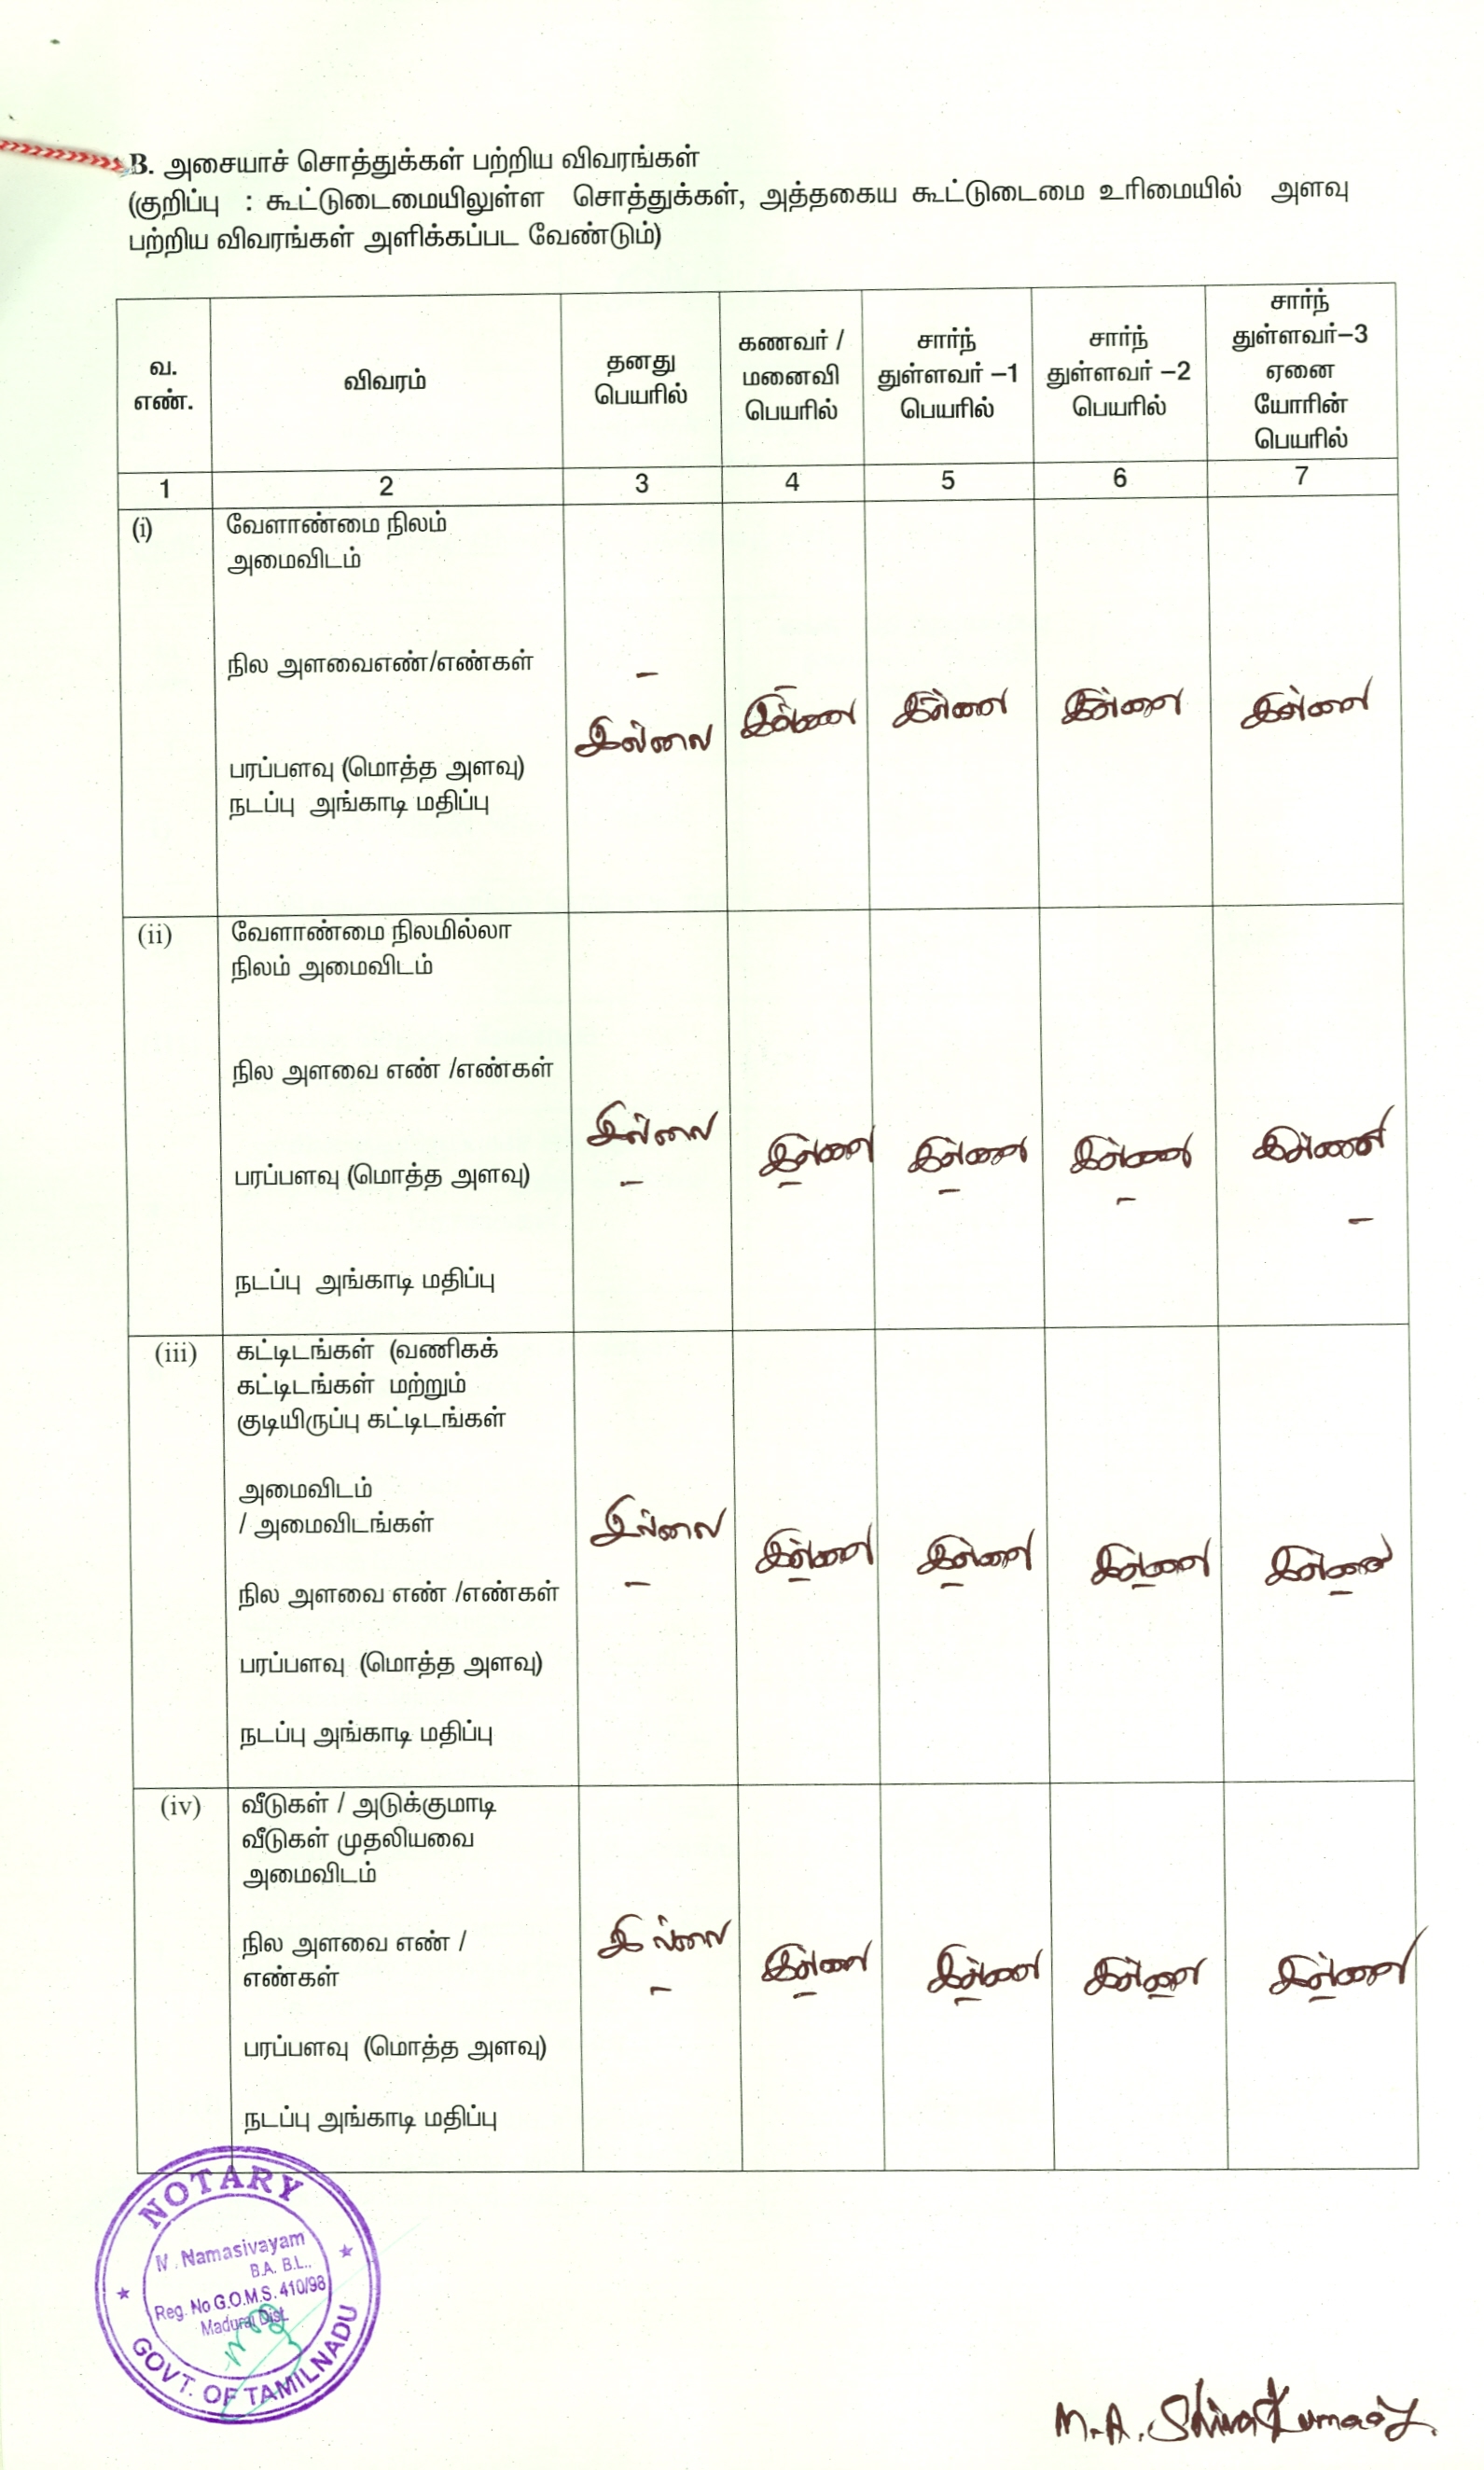 B. அசையாச் சொத்துக்கள் பற்றிய விவரங்கள்
(குறிப்பு : கூட்டுடைமையிலுள்ள சொத்துக்கள், அத்தகைய கூட்டுடைமை உரிமையில் அளவு
பற்றிய விவரங்கள் அளிக்கப்பட வேண்டும்)
வ.
எண்.
விவரம்
தனது
பெயரில்
கணவர் /
மனைவி
பெயரில்
சார்ந்
துள்ளவர் –1
பெயரில்
சார்ந்
துள்ளவர் –2
பெயரில்
சார்ந்
துள்ளவர்–3
ஏனை
யோரின்
பெயரில்
1 2 3 4 5 6 7
(i) வேளாண்மை நிலம்
அமைவிடம்
நில அளவைஎண்/எண்கள்
பரப்பளவு (மொத்த அளவு)
நடப்பு அங்காடி மதிப்பு
–
இல்லை இல்லை இல்லை இல்லை இல்லை
(ii) வேளாண்மை நிலமில்லா
நிலம் அமைவிடம்
நில அளவை எண் /எண்கள்
பரப்பளவு (மொத்த அளவு)
நடப்பு அங்காடி மதிப்பு
இல்லை இல்லை இல்லை இல்லை இல்லை
– – – – –
(iii) கட்டிடங்கள் (வணிகக்
கட்டிடங்கள் மற்றும்
குடியிருப்பு கட்டிடங்கள்
அமைவிடம்
/ அமைவிடங்கள்
நில அளவை எண் /எண்கள்
பரப்பளவு (மொத்த அளவு)
நடப்பு அங்காடி மதிப்பு
இல்லை இல்லை இல்லை இல்லை இல்லை
– – – – –
(iv) வீடுகள் / அடுக்குமாடி
வீடுகள் முதலியவை
அமைவிடம்
நில அளவை எண் /
எண்கள்
பரப்பளவு (மொத்த அளவு)
நடப்பு அங்காடி மதிப்பு
இல்லை இல்லை இல்லை இல்லை இல்லை
– – – – –
NOTARY
N. Namasivayam
B.A. B.L.,
Reg. No G.O.M.S. 410/98
Madurai Dist.
GOVT. OF TAMILNADU
M.A. Shiva Kumar